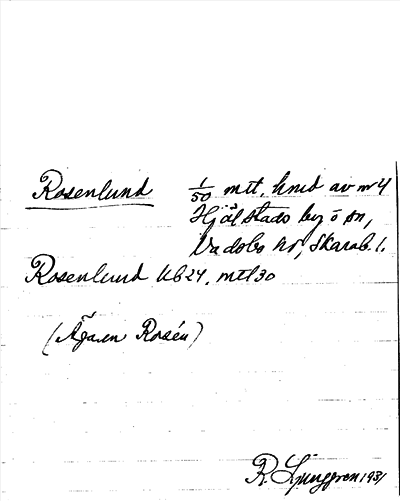 Rosenlund 1/50 mtl, hmd av nr 4
Hjälstads by o sn,
Vadsbo hd, Skarab. l.
Rosenlund UB24, mtl30
(Ägaren Rosén)
R. Ljunggren 1931